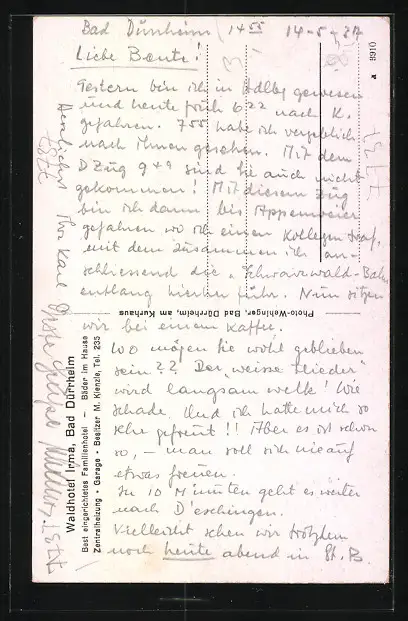 Bad Dürrheim 14 55 14-5-37
Liebe Beate!
Gestern bin ich in Hdlbg gewesen
und heute früh 6 22 nach K.
gefahren. 7 55 habe ich vergeblich
nach Ihnen gesehen. Mit dem
D Zug 9 49 sind Sie auch nicht
gekommen! Mit diesem Zug
bin ich dann bis Appenweier
gefahren wo ich einen Kollegen traf,
mit dem zusammen ich an-
schliessend die "Schwarzwald-Bahn
entlang hierher fuhr. Nun sitzen
wir bei einem Kaffee.
Wo mögen Sie wohl geblieben
sein?? Der "weisse Flieder"
wird langsam welk! Wie
schade. Und ich hatte mich so
sehr gefreut!! Aber es ist schon
so, - man soll sich nie auf
etwas freuen.
In 10 Minuten geht es weiter
nach D'eschingen.
Vielleicht sehen wir trotzdem
noch heute abend in St. B.
Herzlichst Ihr Karl
Waldhotel Irma, Bad Dürrheim
Best eingerichtetes Familienhotel - Bäder im Hause
Zentralheizung - Garage - Besitzer M. Kienzle, Tel. 235
Photo-Wehinger, Bad Dürrheim, am Kurhaus
a 9910